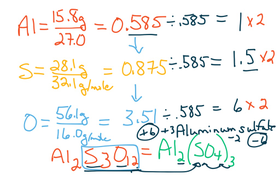 Al = 15.8g/27.0 = 0.585 ÷ .585 = 1 x 2
S = 28.1g/32.1g/mole = 0.875 ÷ .585 = 1.5 x 2
O = 56.1g/16.0g/mole = 3.51 ÷ .585 = 6 x 2
+6 +3 Aluminum sulfate
-2 -6
Al2 S3O12 = Al2 (SO4)3